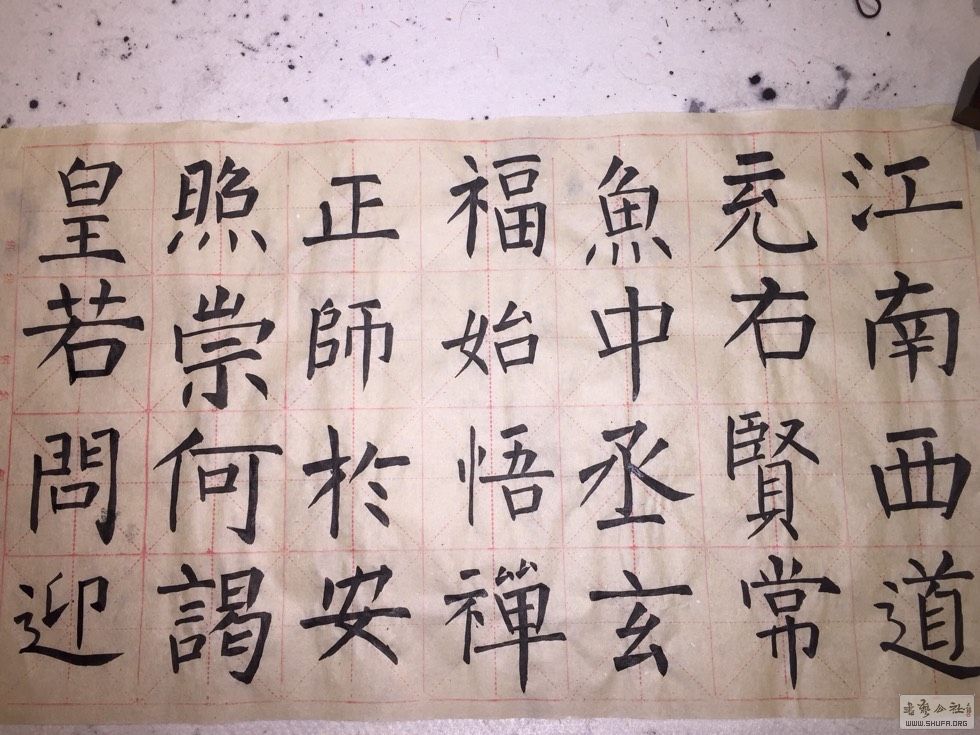 江南西道
充右賢常
魚中丞玄
福始悟禪
正師於安
照崇何謁
皇若問迎
老年公社
WWW.SHUFA.ORG